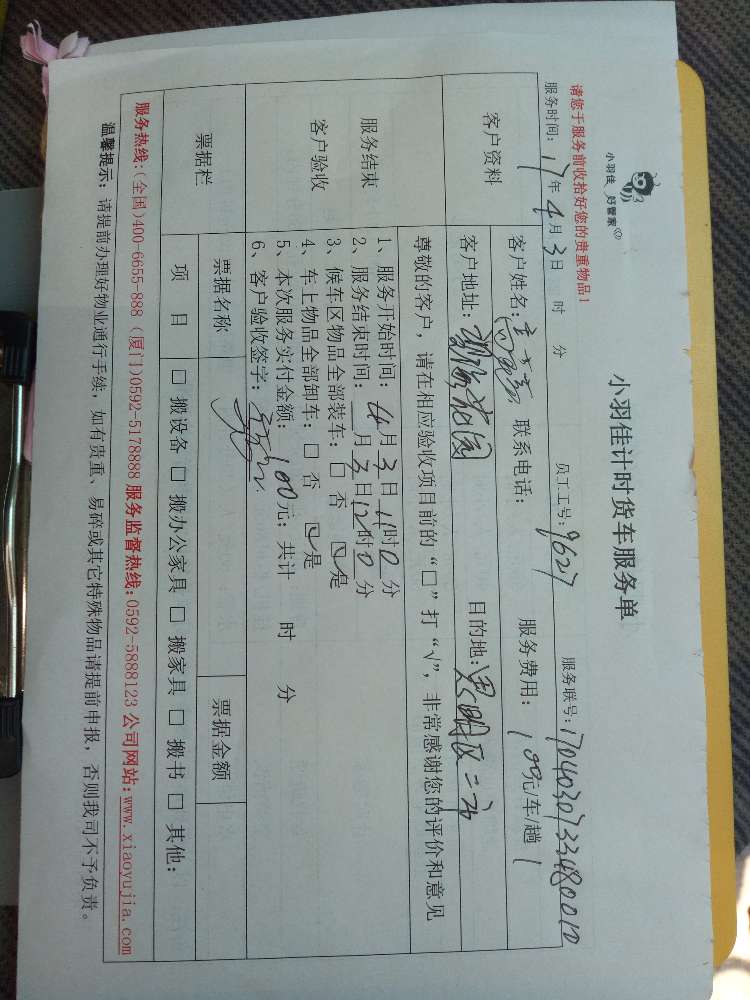 小羽佳 好管家
小羽佳计时货车服务单
请您于服务前收拾好您的贵重物品！
服务时间：17年4月3日 时 分 员工工号：9627 服务联号：17040307334480010
客户资料
客户姓名： 联系电话： 服务费用：100元/车/趟
客户地址：花园 目的地：思明区二市
尊敬的客户，请在相应验收项目前的“□”打“√”，非常感谢您的评价和意见
服务结束
客户验收
1、服务开始时间：4月3日11时0分
2、服务结束时间： 月3日12时0分
3、候车区物品全部装车：□ 否 ☑是
4、车上物品全部卸车：□ 否 ☑是
5、本次服务实付金额：100元；共计 时 分
6、客户验收签字：
票据栏 票据名称 票据金额
项 目 □ 搬设备 □ 搬办公家具 □ 搬家具 □ 搬书 □ 其他：
服务热线：(全国)400-6655-888 (厦门)0592-5178888 服务监督热线：0592-5888123 公司网站：www.xiaoyujia.com
温馨提示：请提前办理好物业通行手续，如有贵重、易碎或其它特殊物品请提前申报，否则我司不予负责。